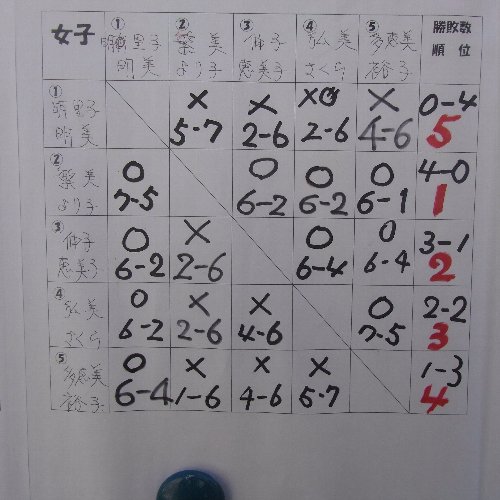 女子 ① ② ③ ④ ⑤ 勝敗数
里子 美 仲子 弘美 多恵美 順位
明美 より子 恵美子 さくら 裕子
① × × × × 0-4
里子 明美 5-7 2-6 2-6 4-6 5
② 美 ○ ○ ○ ○ 4-0
より子 7-5 6-2 6-2 6-1 1
③ 仲子 ○ × ○ ○ 3-1
恵美子 6-2 2-6 6-4 6-4 2
④ 弘美 ○ × × ○ 2-2
さくら 6-2 2-6 4-6 7-5 3
⑤ 多恵美 ○ × × × 1-3
裕子 6-4 1-6 4-6 5-7 4